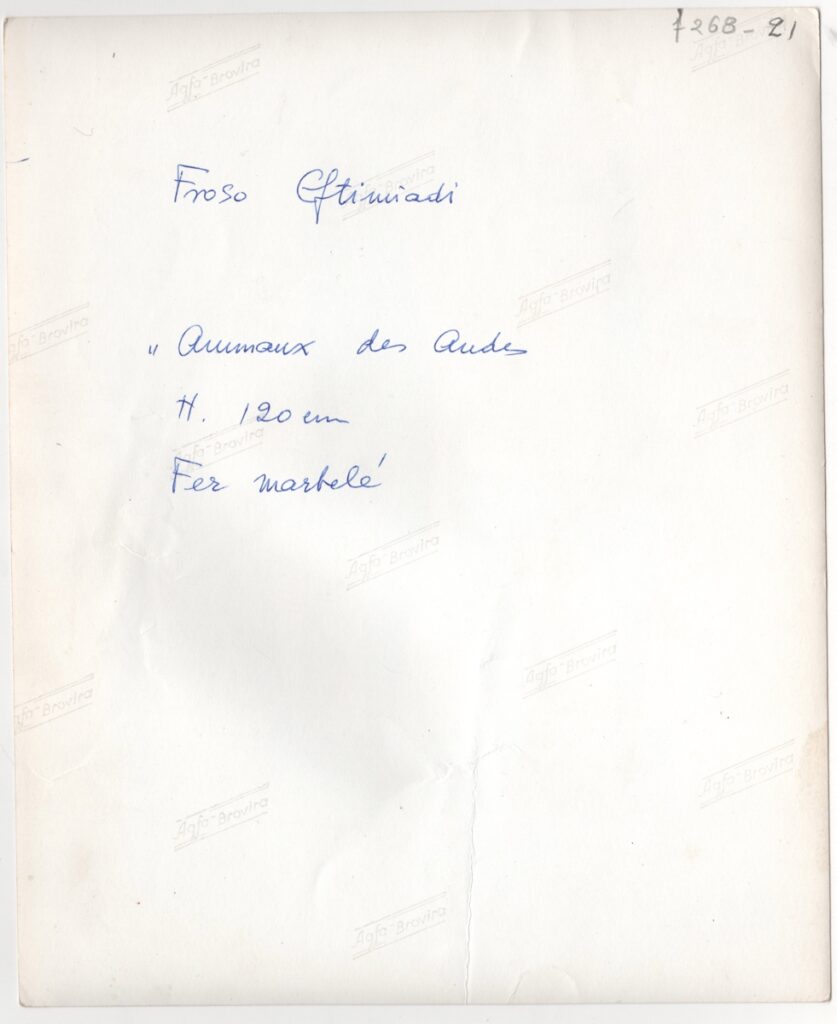 7268-21
Froso Eftimiadi
" Animaux des Andes
H. 120 cm
Fer martelé
Agfa-Brovira
Agfa-Brovira
Agfa-Brovira
Agfa-Brovira
Agfa-Brovira
Agfa-Brovira
Agfa-Brovira
Agfa-Brovira
Agfa-Brovira
Agfa-Brovira
Agfa-Brovira
Agfa-Brovira